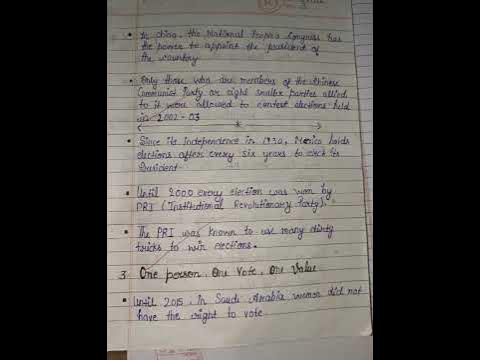 • In China, the National People's Congress has
the power to appoint the president of
the country
• Only those who are members of the Chinese
Communist Party or eight smaller parties allied
to it were allowed to contest elections held
in 2002-03
• Since its independence in 1930, Mexico holds
elections after every six years to elect its
President
• Until 2000 every election was won by
PRI (Institutional Revolutionary Party).
• The PRI was known to use many dirty
tricks to win elections.
3. One person, One Vote, One Value
• Until 2015, in Saudi Arabia women did not
have the right to vote